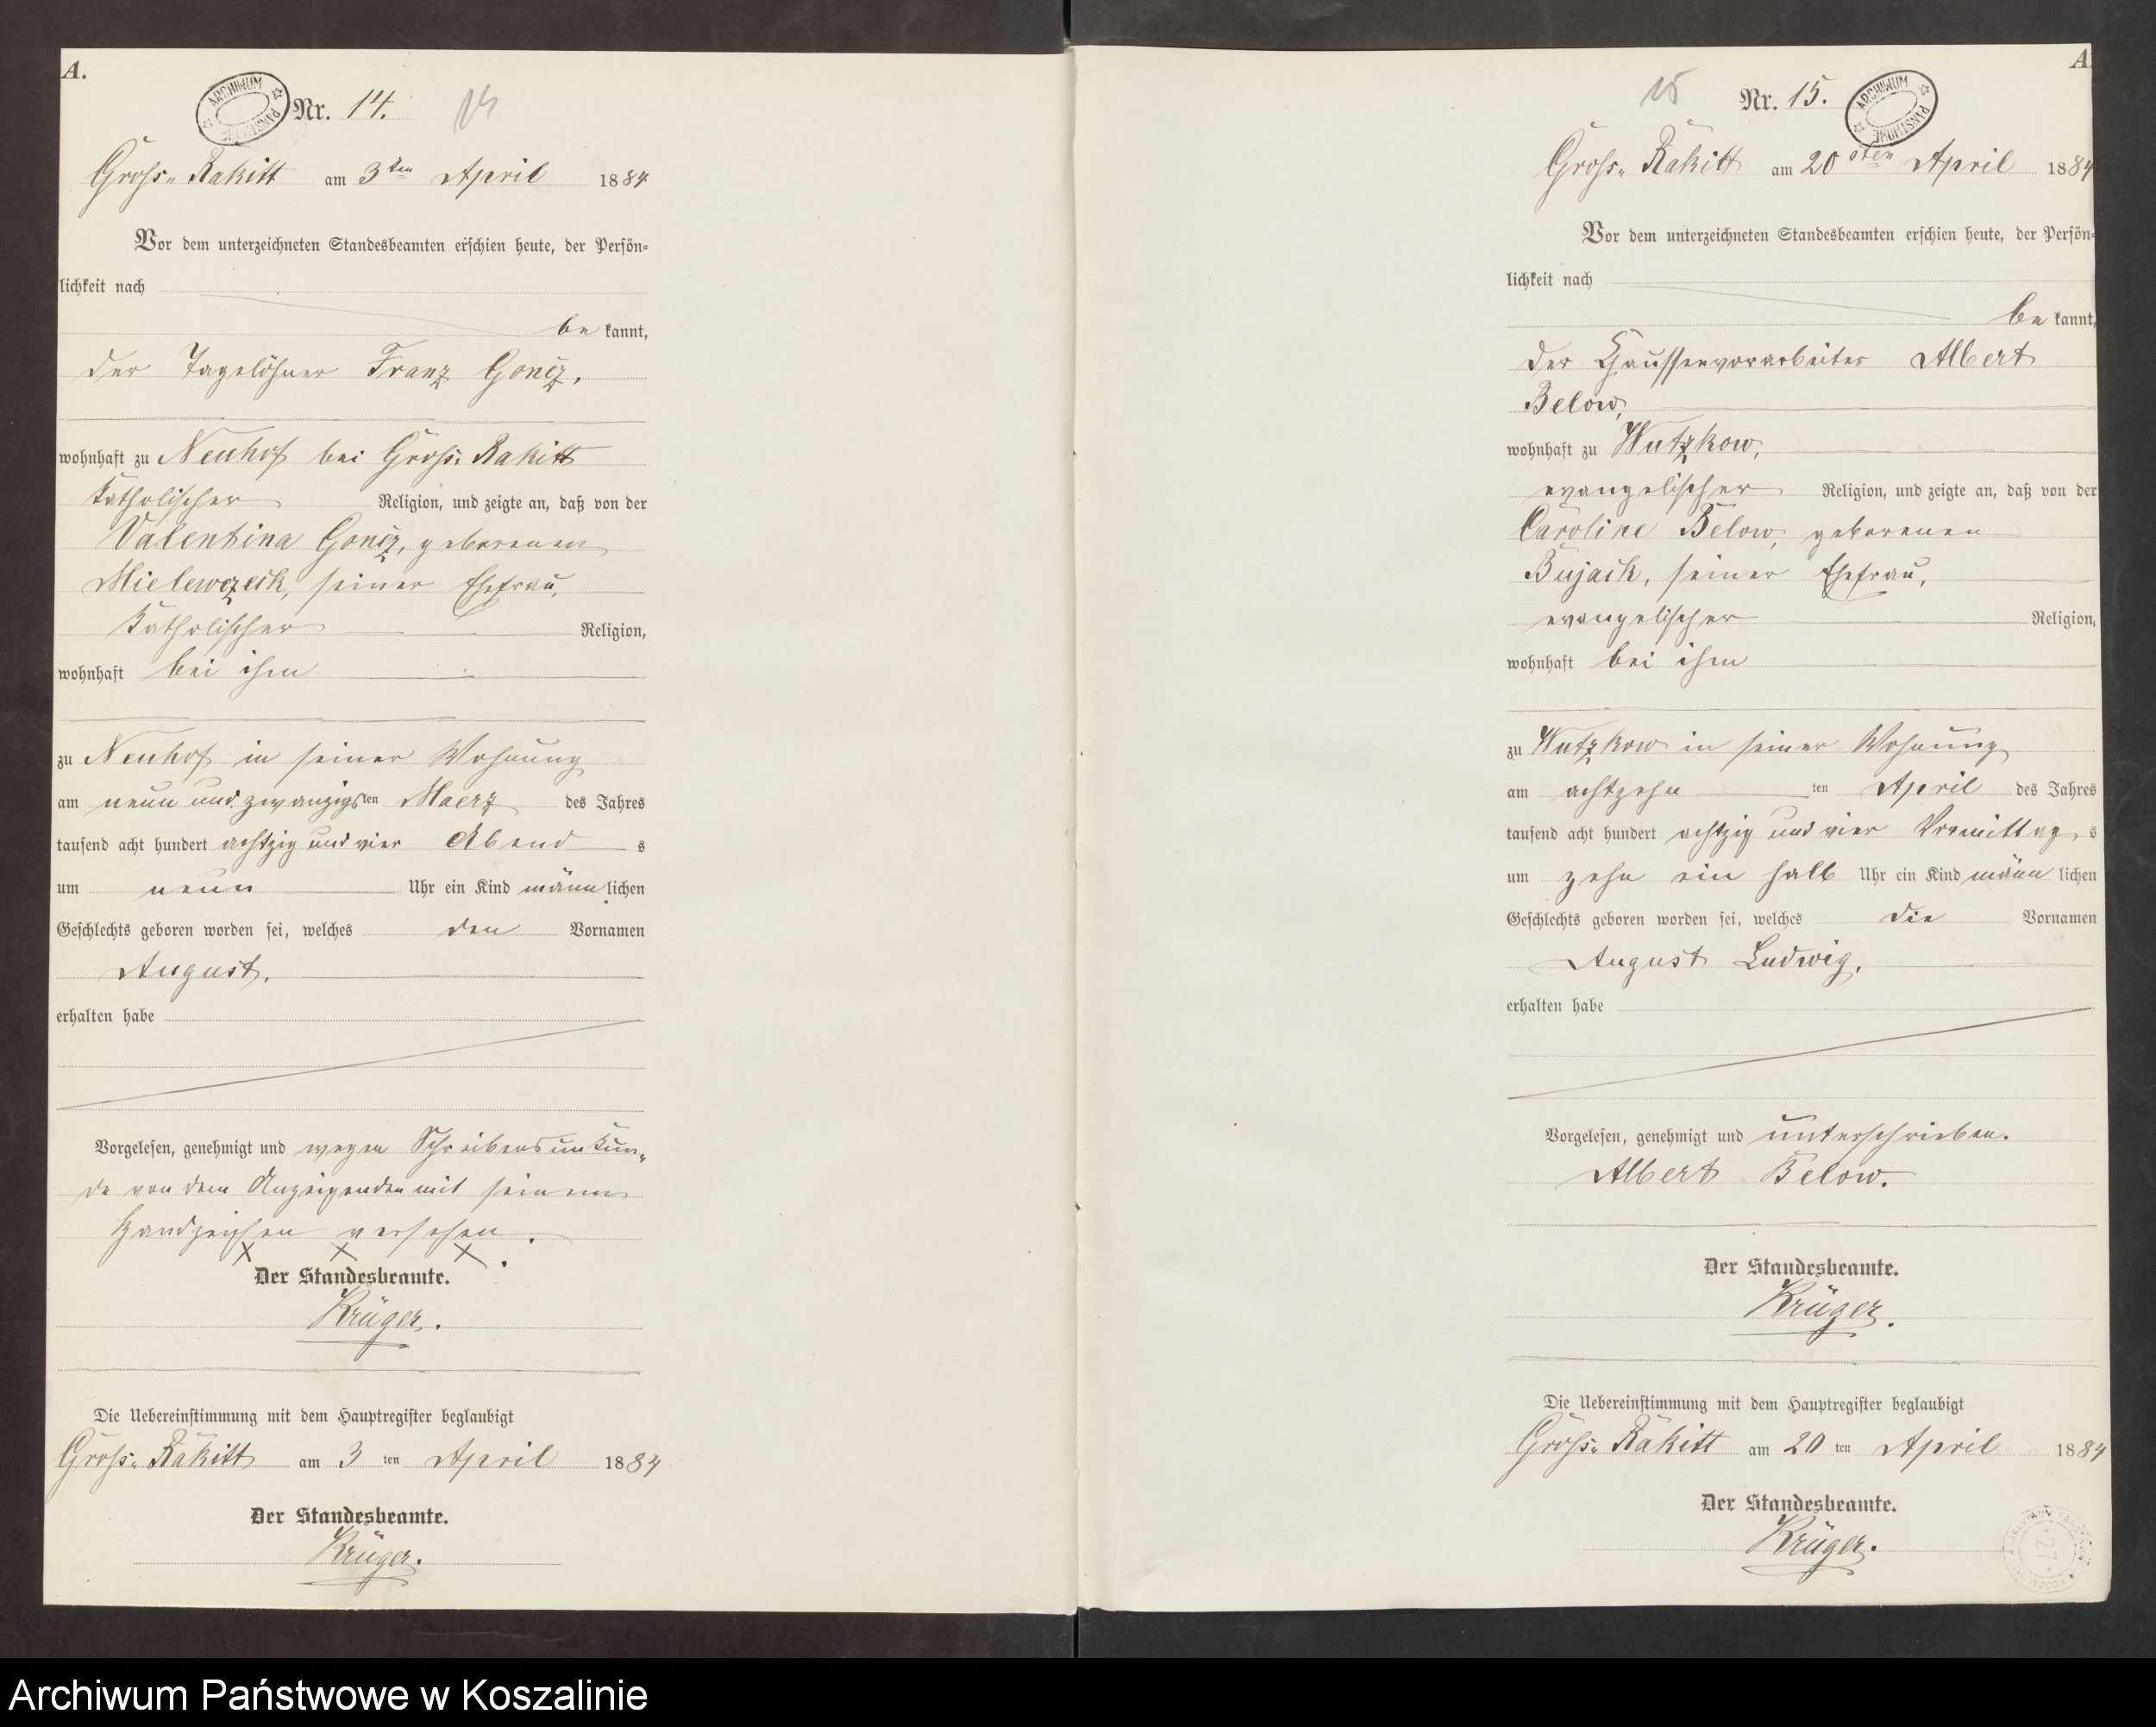 A.
ARCHIWUM PAŃSTWOWE
Nr. 14.
14
Gross-Rakitt am 3ten April 1884
Vor dem unterzeichneten Standesbeamten erschien heute, der Persön-
lichkeit nach
be kannt,
der Tagelöhner Franz Goncz,
wohnhaft zu Neuhof bei Gross-Rakitt
katholischer Religion, und zeigte an, daß von der
Valentina Goncz, geborenen
Mielewczeck, seiner Ehefrau,
katholischer Religion,
wohnhaft bei ihm
zu Neuhof in seiner Wohnung
am neun und zwanzigsten Maerz des Jahres
tausend acht hundert achtzig und vier Abend s
um neun Uhr ein Kind männlichen
Geschlechts geboren worden sei, welches den Vornamen
August,
erhalten habe
Vorgelesen, genehmigt und wegen Schreibensunkun-
de von dem Anzeigenden mit seinem
Handzeichen versehen.
X X X.
Der Standesbeamte.
Krüger.
Die Uebereinstimmung mit dem Hauptregister beglaubigt
Gross-Rakitt am 3 ten April 1884
Der Standesbeamte.
Krüger.
A.
15
Nr. 15.
ARCHIWUM PAŃSTWOWE
Gross-Rakitt am 20sten April 1884
Vor dem unterzeichneten Standesbeamten erschien heute, der Persön-
lichkeit nach
be kannt,
der Chaussenvorarbeiter Albert
Below,
wohnhaft zu Wutzkow,
evangelischer Religion, und zeigte an, daß von der
Caroline Below, geborenen
Bujack, seiner Ehefrau,
evangelischer Religion,
wohnhaft bei ihm
zu Wutzkow in seiner Wohnung
am achtzehn ten April des Jahres
tausend acht hundert achtzig und vier Vormittag s
um zehn ein halb Uhr ein Kind männ lichen
Geschlechts geboren worden sei, welches die Vornamen
August Ludwig,
erhalten habe
Vorgelesen, genehmigt und unterschrieben.
Albert Below.
Der Standesbeamte.
Krüger.
Die Uebereinstimmung mit dem Hauptregister beglaubigt
Gross-Rakitt am 20 ten April 1884
Der Standesbeamte.
Krüger.
27
Archiwum Państwowe w Koszalinie